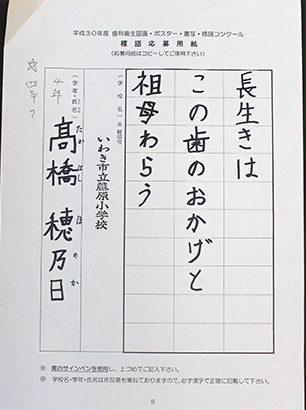 平成30年度 歯科衛生図画・ポスター・書写・標語コンクール
標語応募用紙
(応募用紙はコピーしてご使用下さい)
長生きは
この歯のおかげと
祖母わらう
(学校名)※総ルビ
いわき市立藤原小学校
(学年・氏名)
4年 髙橋 穂乃日
たかはし ほのか
※ 黒のサインペンを使用し、上づめでご記入下さい。
※ 学校名・学年・氏名は作品票も兼ねておりますので、必ず漢字で正確に記載して下さい。
8